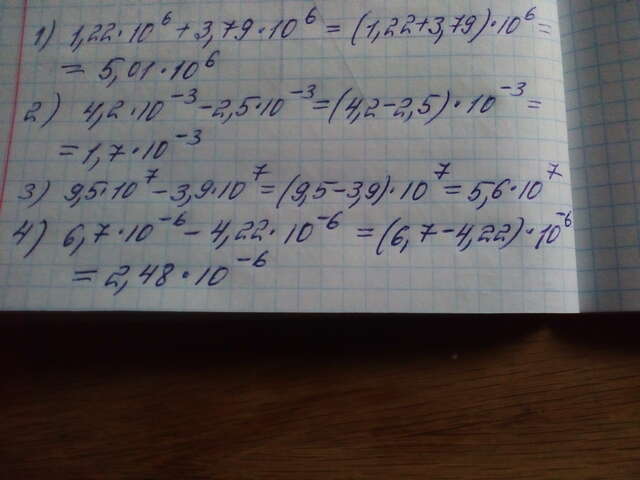 1) 1,22·10⁶+3,79·10⁶=(1,22+3,79)·10⁶=
=5,01·10⁶
2) 4,2·10⁻³-2,5·10⁻³=(4,2-2,5)·10⁻³=
=1,7·10⁻³
3) 9,5·10⁷-3,9·10⁷=(9,5-3,9)·10⁷=5,6·10⁷
4) 6,7·10⁻⁶-4,22·10⁻⁶=(6,7-4,22)·10⁻⁶
=2,48·10⁻⁶